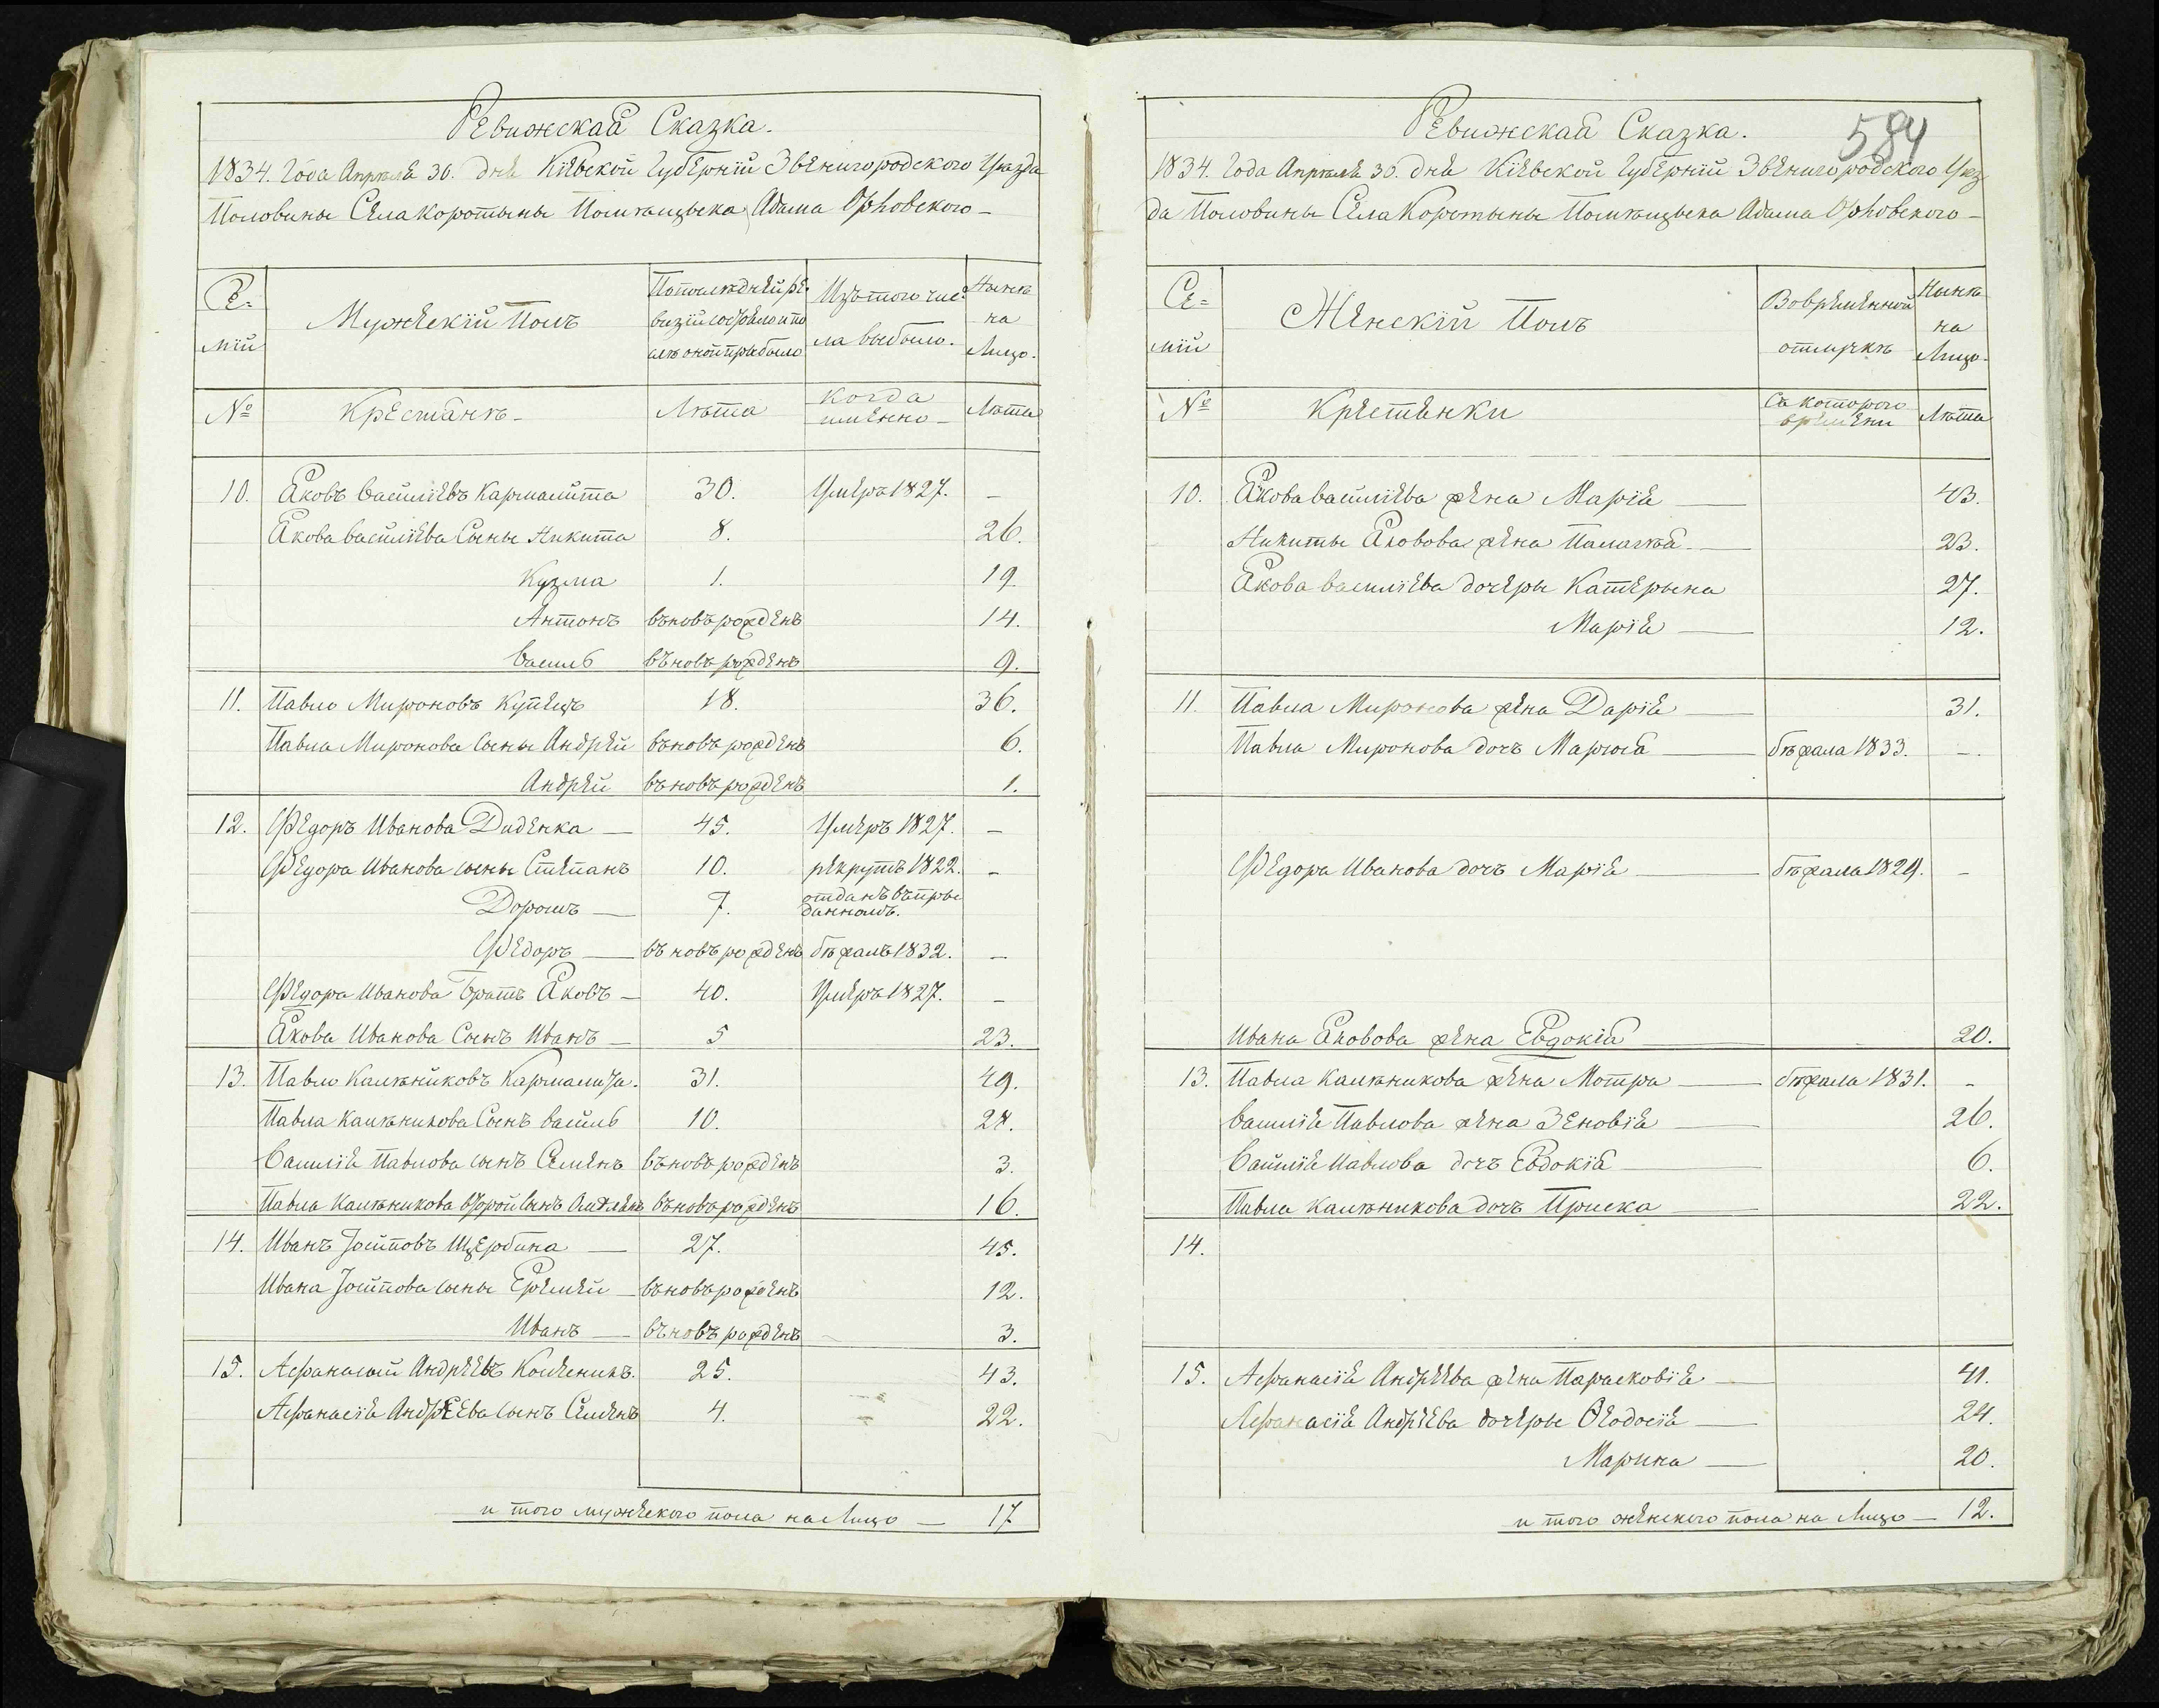 Ревижская Сказка.
1834. года Апреля 30. дня Кіевской Губерніи Звенигородского Уезда
Половины Села Коротыны Помѣщыка Адама Орловского
Се=
мїи
Мужескій Полъ
По последней ре-
визіи состояло и по
слѣ оной прыбыло
Изъ того чис-
ла выбыло.
Нынѣ
на
Лицо.
№
Крестянѣ
Лѣта
когда
имѣнно
Лѣта
10. Яковъ Василіевъ Кармалита 30. Умеръ 1827. —
Якова Василіева Сыны Никита 8. 26.
Кузма 1. 19
Антонъ въновъ рожденъ 14.
Василь въновъ рожденъ 9.
11. Павло Мироновъ Купецъ 18. 36.
Павла Миронова сыны Андрей въновъ рожденъ 6.
Андрей въновъ рожденъ 1.
12. Федоръ Иванова Диденка — 45. Умеръ 1827. —
Федора Иванова сыны Степанъ 10. рекрутъ 1822. —
Дорошъ — 7. отданъ въ пры
данномъ.
Федоръ — въновъ рожденъ бѣжалъ 1832. —
Федора Иванова братъ Яковъ — 40. Умеръ 1827. —
Якова Иванова Сынъ Иванъ — 5 23.
13. Павло Калѣниковъ 31. 49.
Павла Калѣникова Сынъ Василь 10. 28.
Василія Павлова сынъ Семенъ въновъ рожденъ 3.
Павла Калѣникова второй сынъ въновъ рожденъ 16.
14. Иванъ Іосиповъ Щербина — 27. 45.
Ивана Іосипова сыны Еремей — вънов рожденъ 12.
Иванъ — въновъ рожденъ 3.
15. Афанасый Андреевъ Колѣникъ. 25. 43.
Афанасія Андреева сынъ Семенъ 4. 22.
и того мужеского пола на Лицо — 17
584
Ревижская Сказка.
1834. года Апреля 30. дня Кіевской Губерніи Звенигородского Уез
да Половины Села Коротыны Помѣщыка Адама Орловского
Се=
мїи
Женскій Полъ
Вовременной
отлучкѣ
Нынѣ
на
Лицо.
№
Крестянки
Съ которого
времени
Лѣта
10. Якова Василіева жена Марія — 43.
Никиты Яковова жена Палажка — 23.
Якова Василіева дочеры Катерына 27.
Марія — 12.
11. Павла Миронова жена Дарія — 31.
Павла Миронова дочъ Маруся — бѣжала 1833. —
Федора Иванова дочъ Марія — бѣжала 1829. —
Ивана Яковова жена Евдокія — 20.
13. Павла Калѣникова жена Мотра — бѣжала 1831. —
Василія Павлова жена Зеновія — 26.
Василія Павлова дочъ Евдокія — 6.
Павла Калѣникова дочъ Приска — 22.
14.
15. Афанасія Андреева жена Парасковія — 41.
Афанасія Андреева дочеры Феодосія — 24.
Марина — 20.
и того женского пола на Лицо — 12.